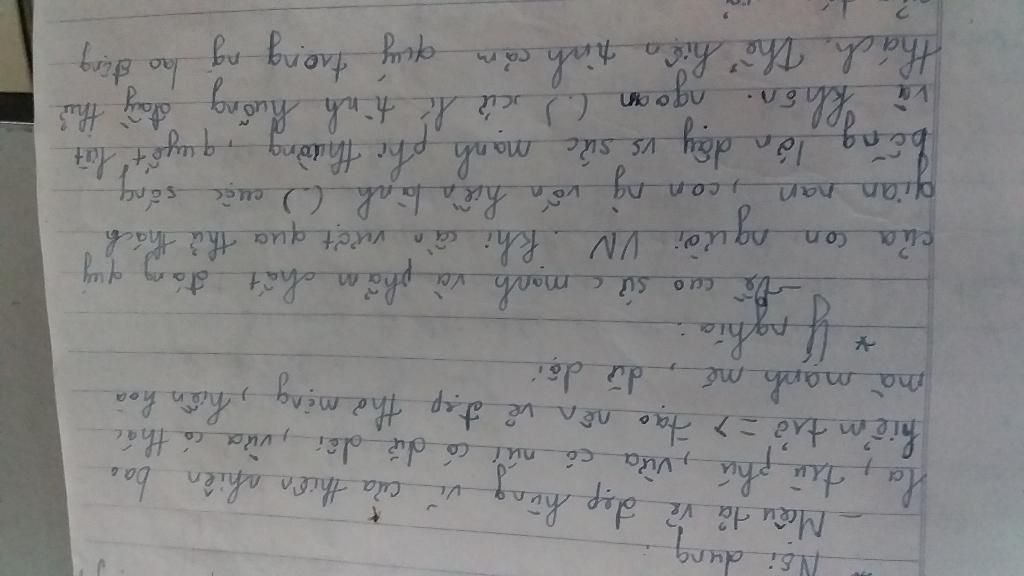 * Nội dung:
- Miêu tả vẻ đẹp hùng vĩ của thiên nhiên bao
la, trù phú, vừa có núi có dữ dội, vừa có thác
hiểm trở => tạo nên vẻ đẹp thơ mộng, hiền hoà
mà mãnh mẽ, dữ dội
* Ý nghĩa:
- Đề cao sức mạnh và phẩm chất đáng quý
của con người VN. Khi cần vượt qua thử thách
gian nan, con ng vốn hiền lành (.) cuộc sống
bỗng lớn dậy vs sức mạnh phi thường, quyết liệt
và khôn ngoan (.) xử lí tình huống đầy thử
thách. Thể hiện tình cảm quý trọng ng lao động